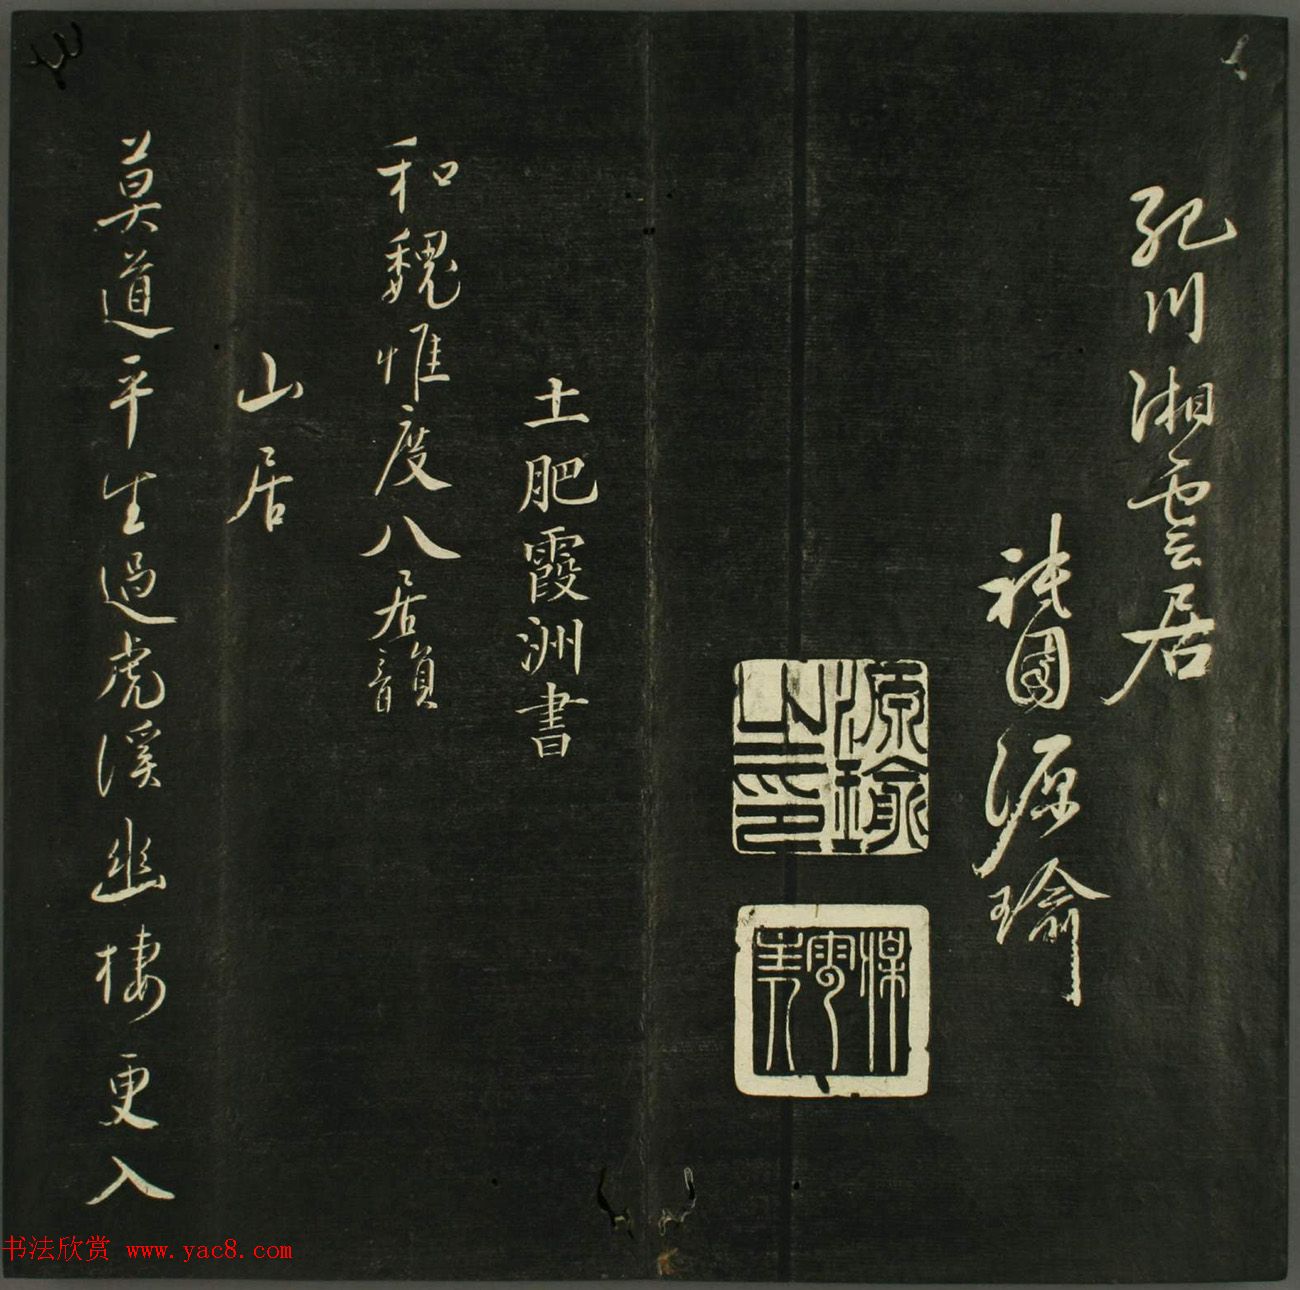 紀川湘雲居
祇園源瑜
源瑜
之印
土肥霞洲書
和魏惟度八居韻
山居
莫道平生過虎溪幽棲更入
书法欣赏 www.yac8.com